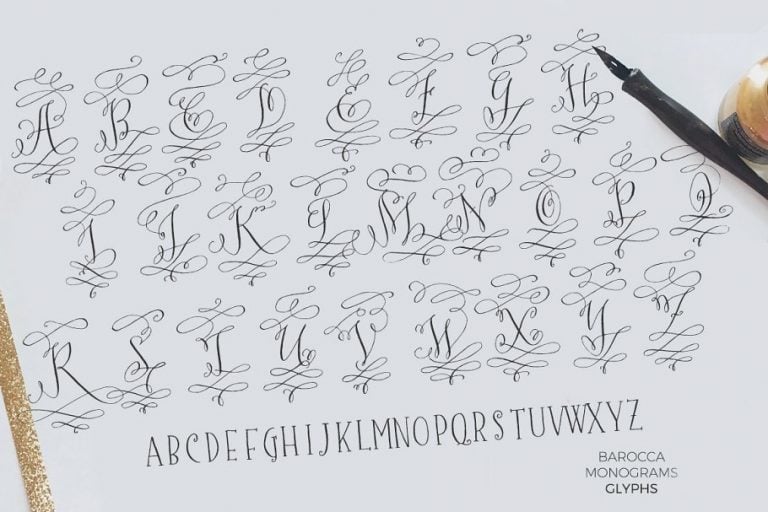 A B C D E F G H
I J K L M N O P Q
R S T U V W X Y Z
ABCDEFGHIJKLMNOPQRSTUVWXYZ
BAROCCA
MONOGRAMS
GLYPHS